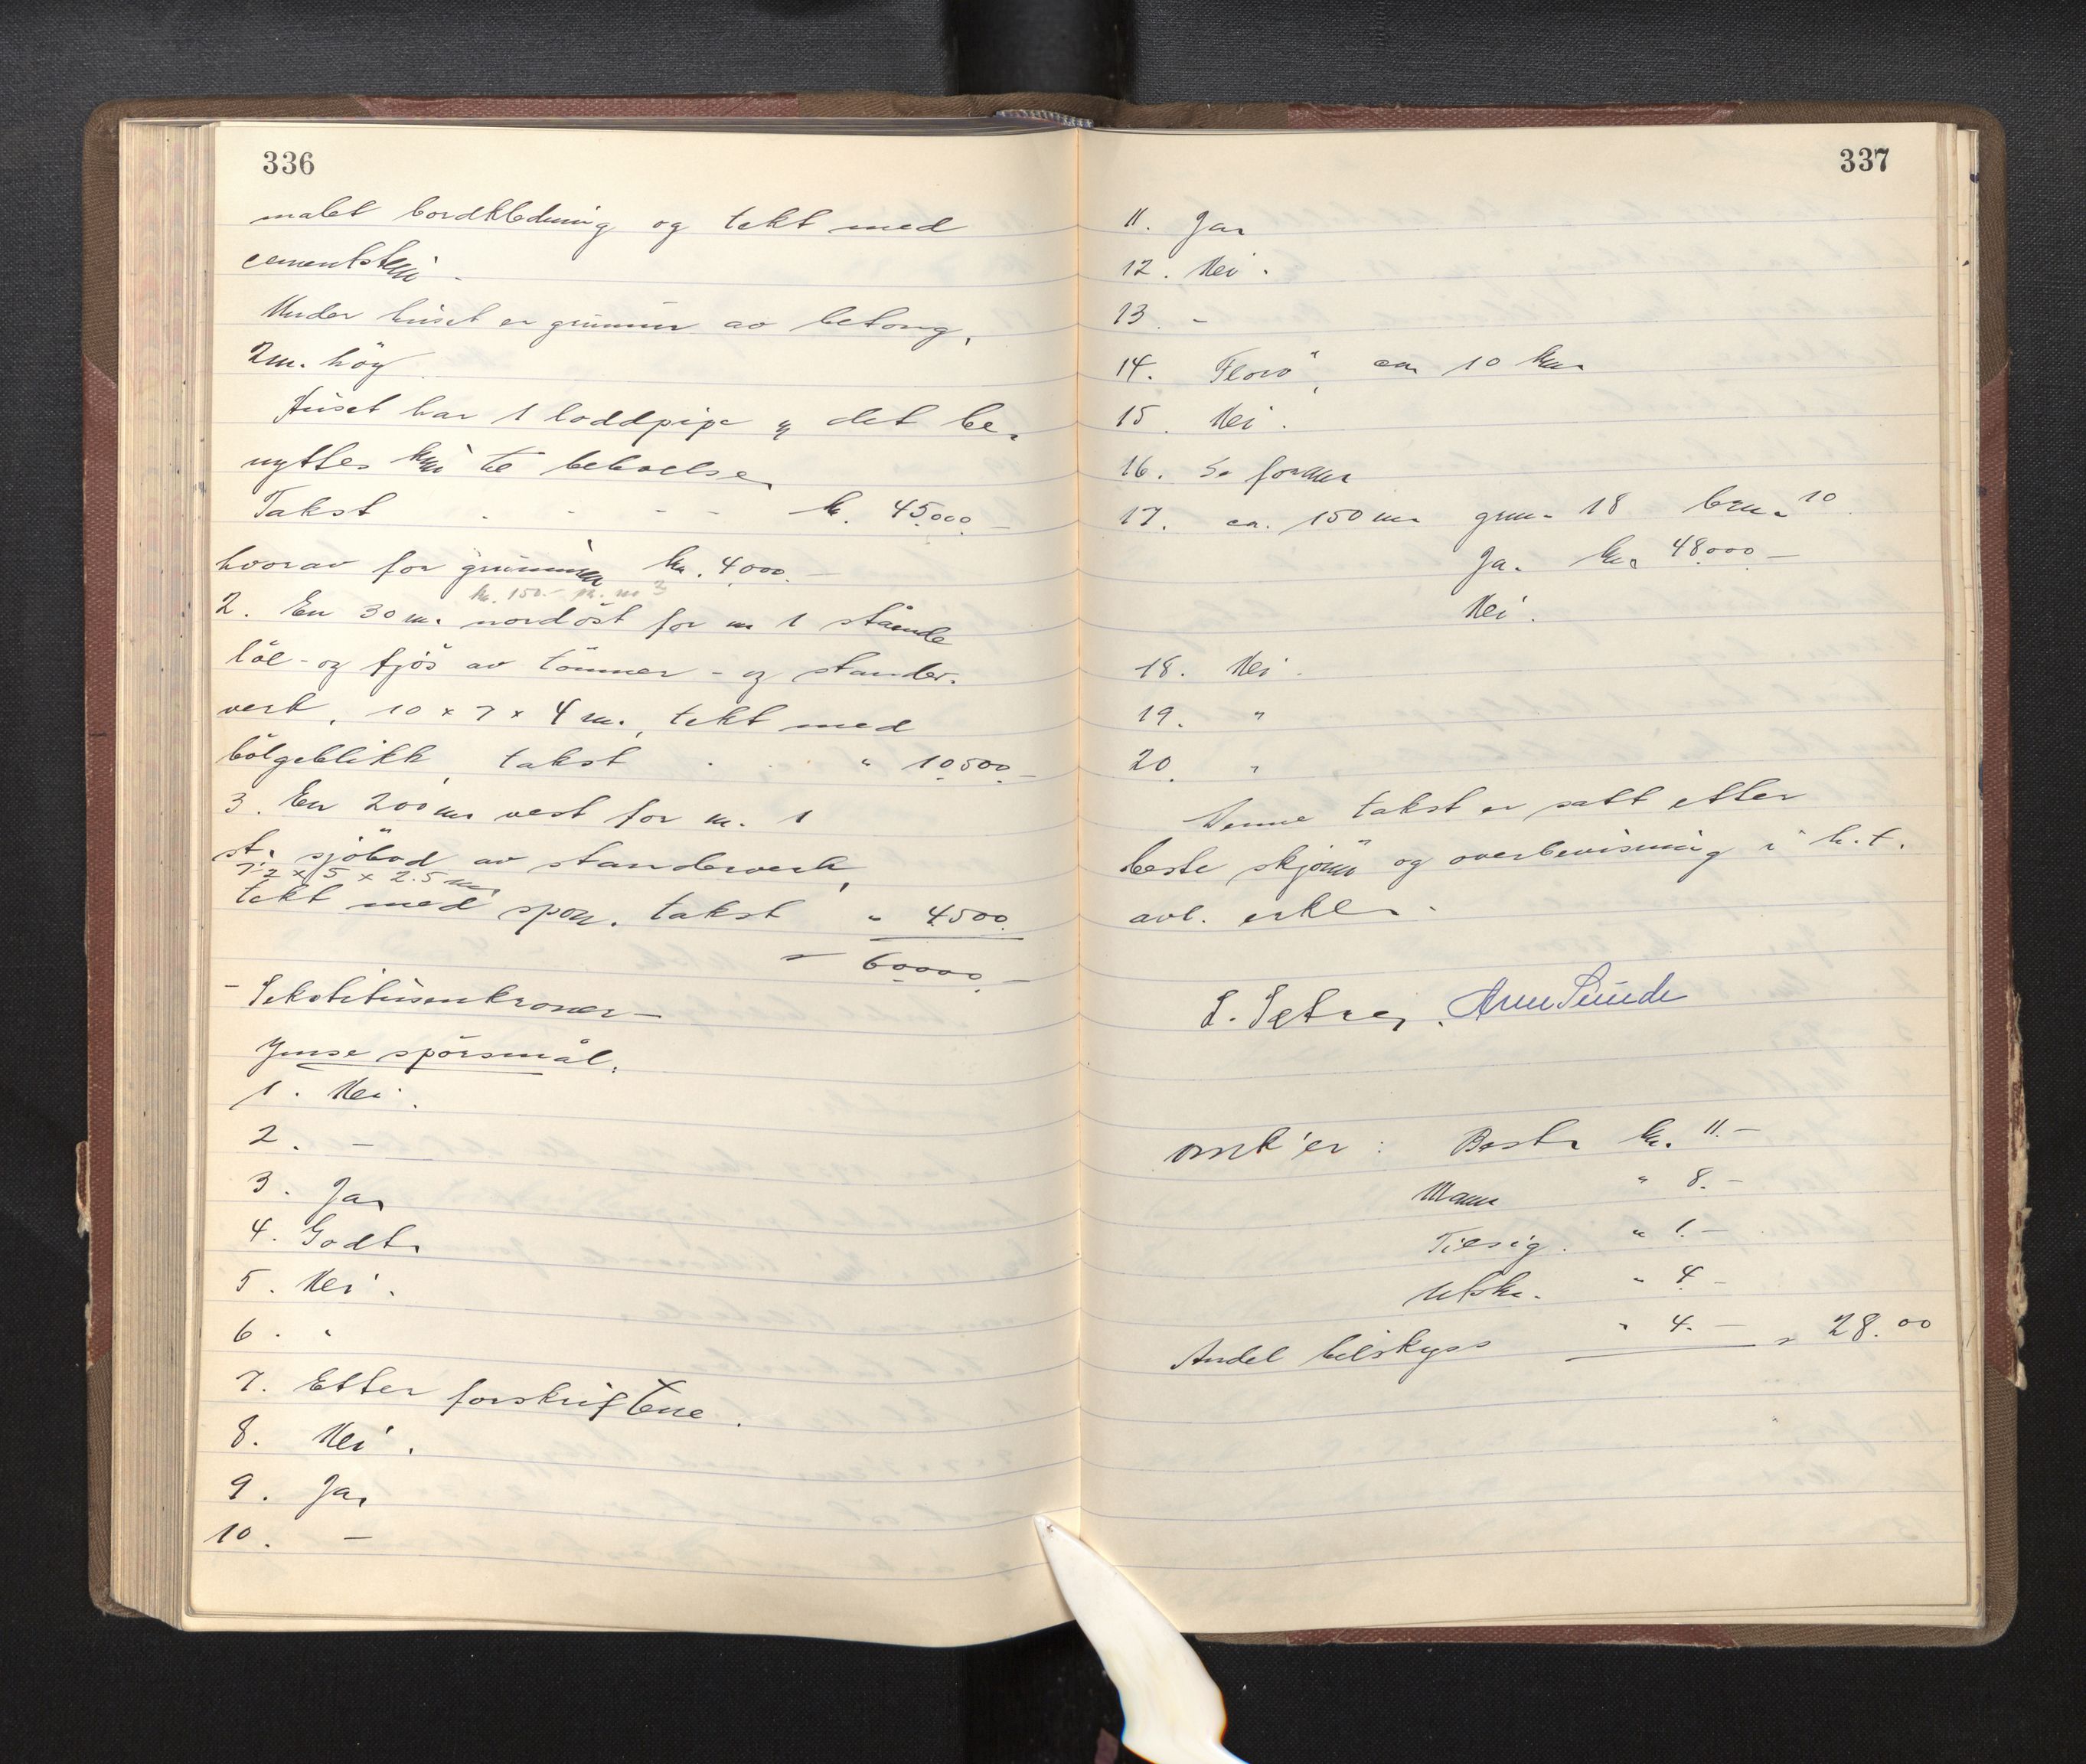 336
malet bordkledning og tekt med
cementstein.
Under huset er grunmur av betong,
2m. höy
Huset har 1 loddpipe og det be-
nyttes kun til beboelse.
Takst - - - - kr. 45000 -
hvorav for grunmuren kr. 4000.-
kr. 150.- pr. m3
2. En 30 m. nordöst for nr 1 stående
löe- og fjös av tömmer- og stander-
verk, 10 x 7 x 4 m., tekt med
bölgeblikk, takst . . . " 10500.-
3. En 200 m. vest for nr. 1
st. sjöbod av standerverk,
7.2 x 5 x 2.5 m.
tekt med spon. takst " 4500.
" 60000.-
- Sekstitusenkroner -
Ymse spörsmål.
1. Nei.
2. -
3. Ja.
4. Godt.
5. Nei.
6. "
7. Etter forskriftene.
8. Nei.
9. Ja.
10. -
337
11. Ja.
12. Nei.
13. -
14. Florö, ca. 10 km.
15. Nei.
16. Se foran.
17. ca. 150 m. grnr. 18 brnr. 10.
Ja. kr. 48000.-
Nei.
18. Nei.
19. "
20. "
Denne takst er satt etter
beste skjönn og overbevisning i h.t.
avl. erkl.
S. Setre, Arne Sunde
omk'er : Best. kr. 11.-
Mann " 8.-
Tilsig. " 1.-
Utskr. " 4.-
Andel bilskyss " 4.- " 28.00